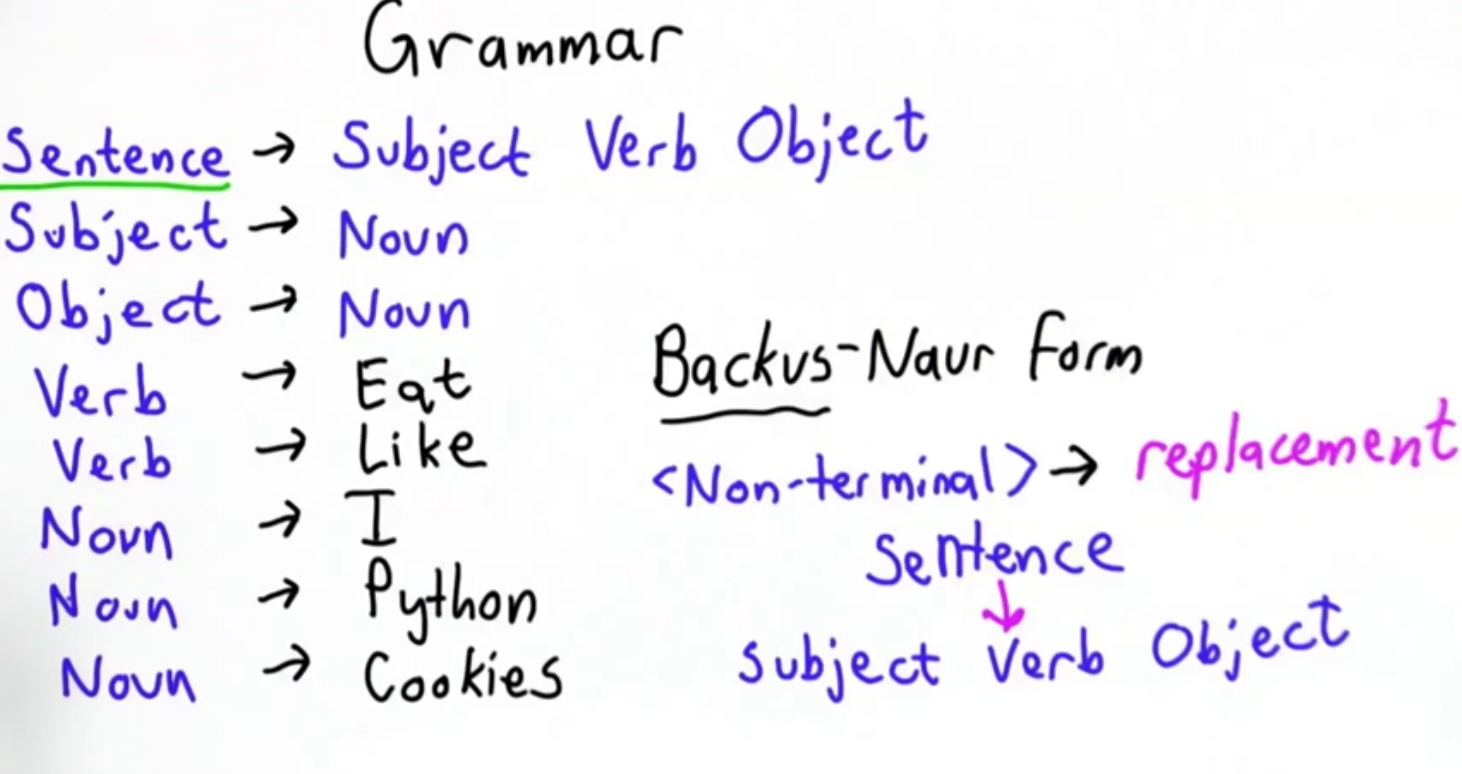 Grammar
Sentence → Subject Verb Object
Subject → Noun
Object → Noun
Verb → Eat
Verb → Like
Noun → I
Noun → Python
Noun → Cookies
Backus-Naur Form
<Non-terminal> → replacement
Sentence
↓
Subject Verb Object